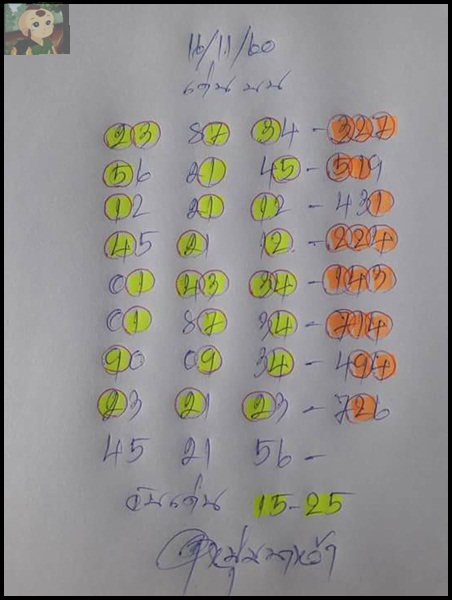 16/11/60
เด่นบน
23 87 34 - 327
56 21 45 - 519
12 21 12 - 431
45 21 12 - 224
01 43 34 - 143
01 87 34 - 714
90 09 34 - 494
23 21 23 - 726
45 21 56 -
จับเด่น 15-25